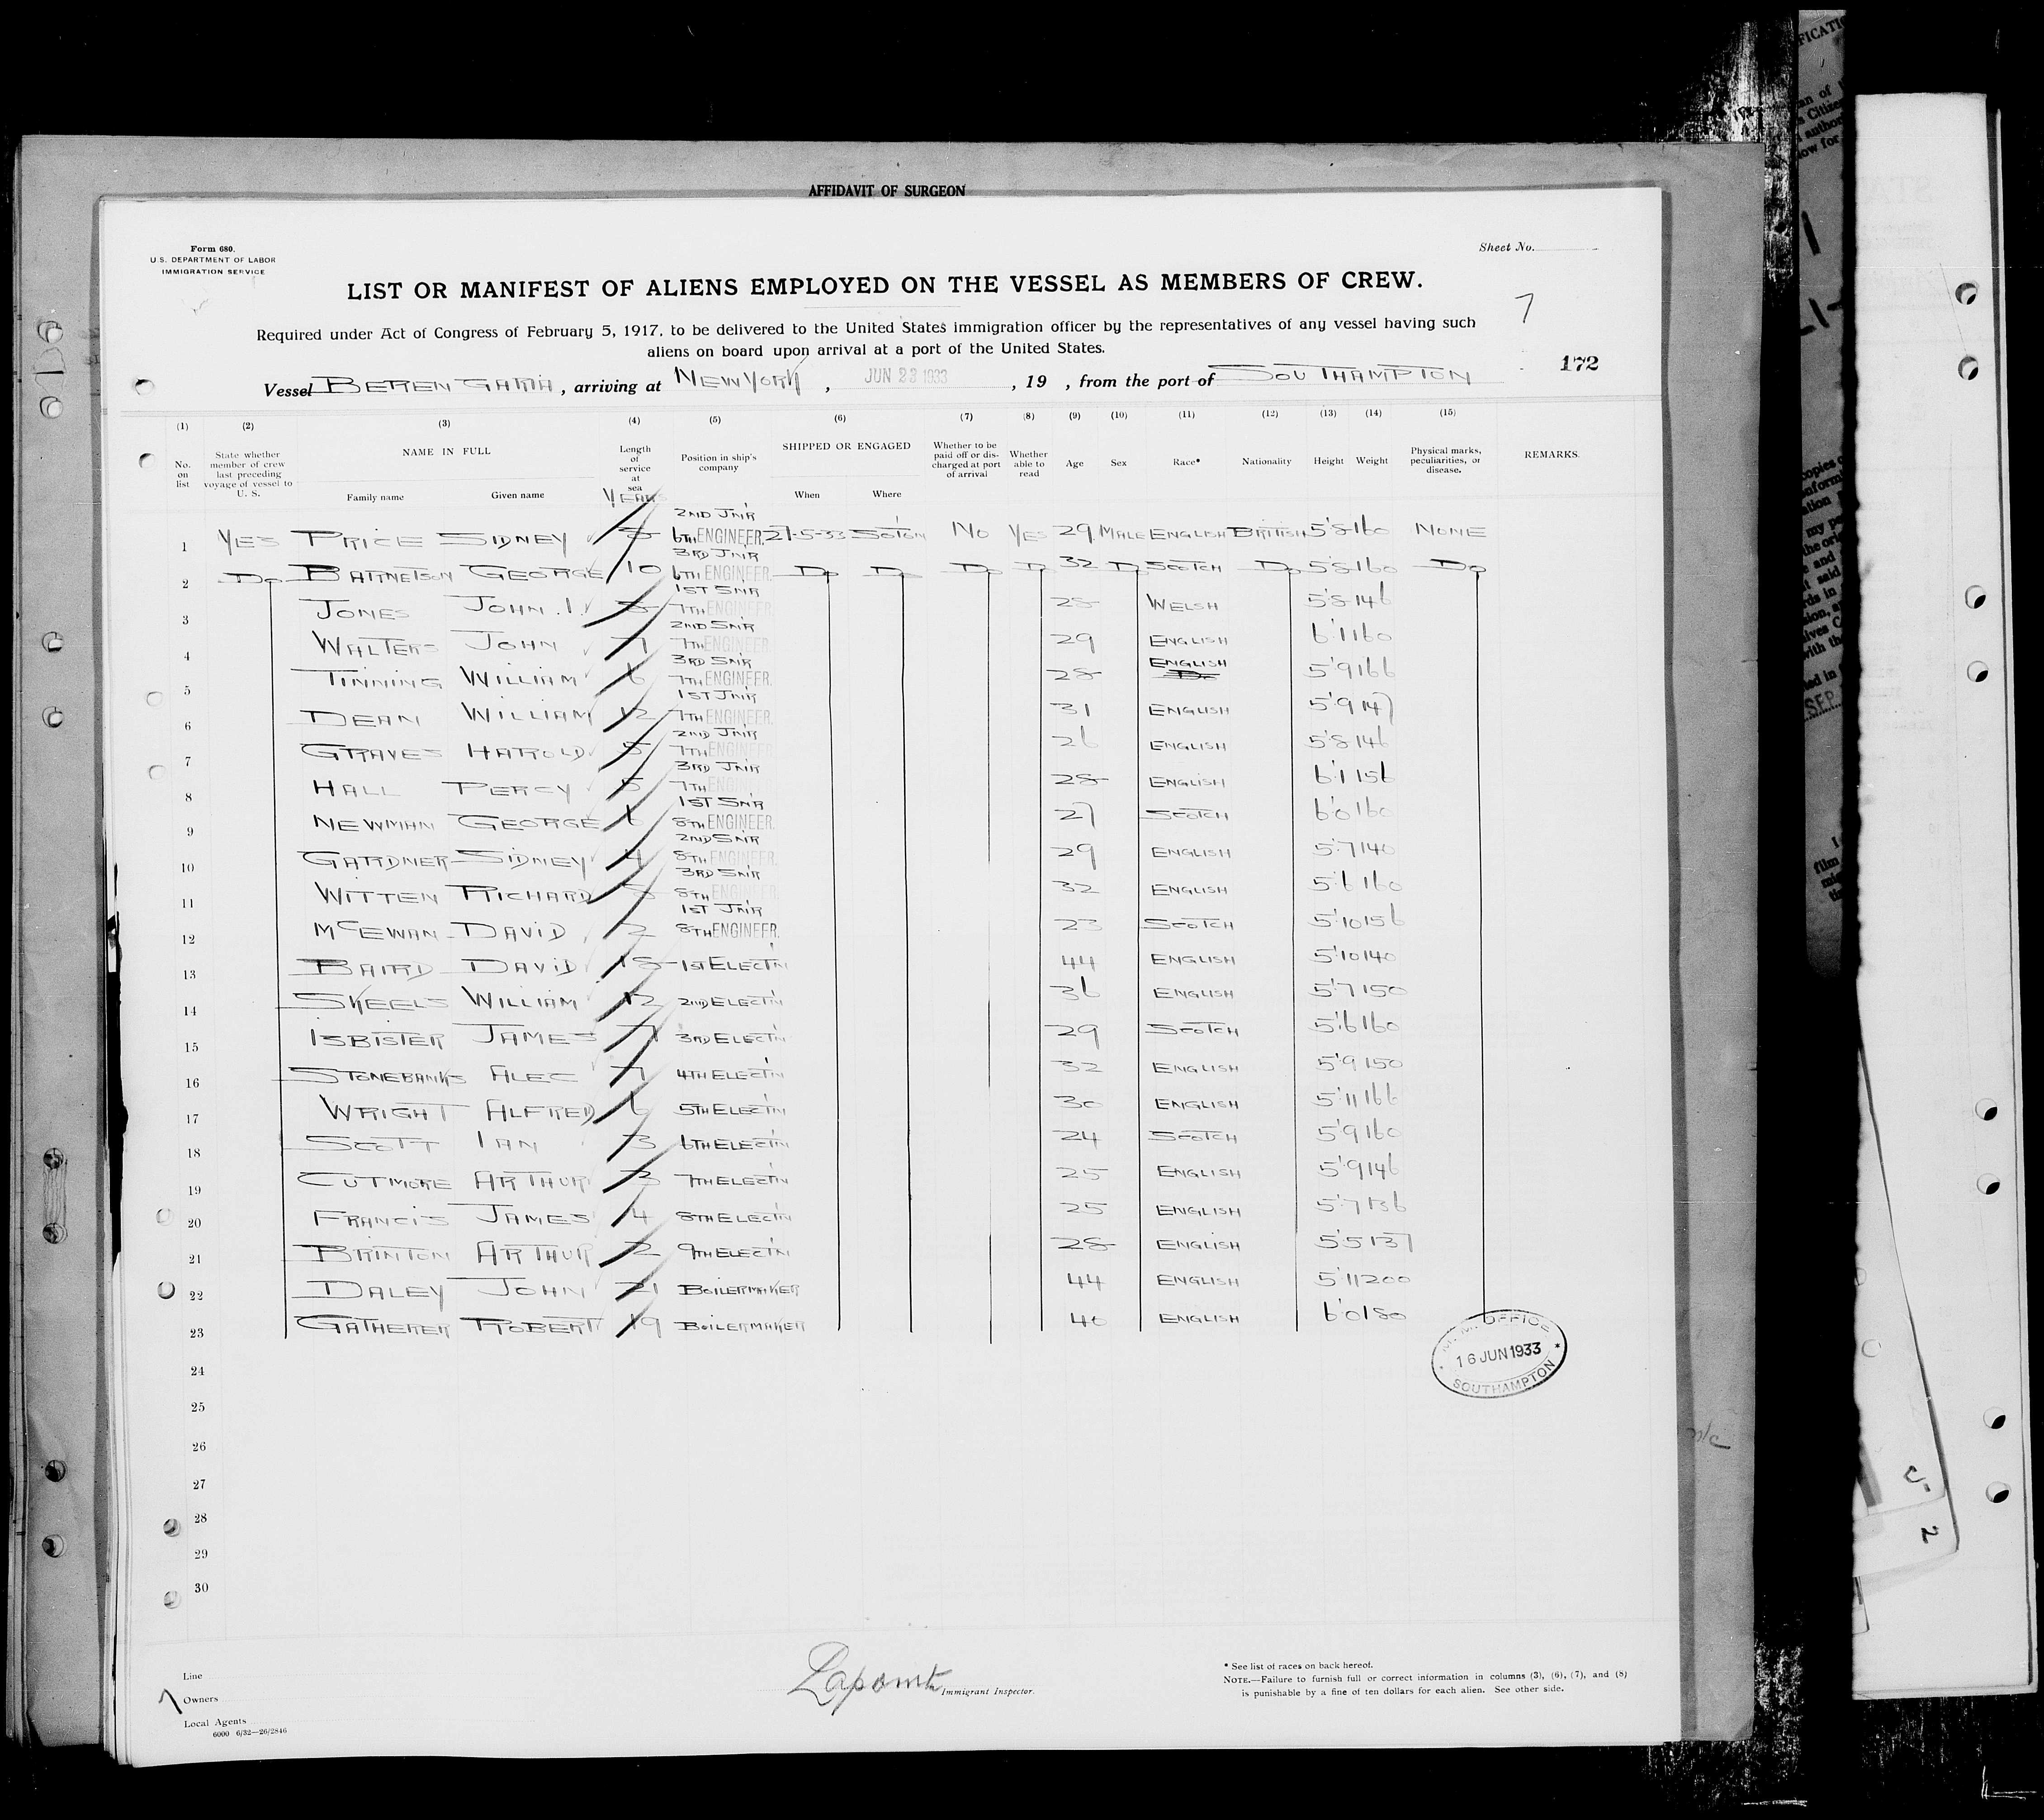 AFFIDAVIT OF SURGEON
Form 680.
U.S. DEPARTMENT OF LABOR
IMMIGRATION SERVICE
Sheet No.
LIST OR MANIFEST OF ALIENS EMPLOYED ON THE VESSEL AS MEMBERS OF CREW.
7
Required under Act of Congress of February 5, 1917, to be delivered to the United States immigration officer by the representatives of any vessel having such
aliens on board upon arrival at a port of the United States.
172
Vessel BERENGARIA, arriving at NEW YORK, JUN 23 1933, 19 , from the port of SOUTHAMPTON
(1) (2) (3) (4) (5) (6) (7) (8) (9) (10) (11) (12) (13) (14) (15)
No. on list
State whether member of crew last preceding voyage of vessel to U. S.
NAME IN FULL
Family name Given name
Length of service at sea
YEARS
Position in ship's company
SHIPPED OR ENGAGED
When Where
Whether to be paid off or discharged at port of arrival
Whether able to read
Age Sex Race* Nationality Height Weight
Physical marks, peculiarities, or disease.
REMARKS.
1 YES PRICE SIDNEY 5 2ND JNR 6TH ENGINEER. 27-5-33 SOTON NO YES 29 MALE ENGLISH BRITISH 5'8 160 NONE
2 DO BARNETSON GEORGE 10 3RD JNR 6TH ENGINEER. DO DO DO D 32 DO SCOTCH DO 5'8 160 DO
3 JONES JOHN. I. 5 1ST SNR 7TH ENGINEER 28 WELSH 5'8 146
4 WALTERS JOHN 7 2ND SNR 7TH ENGINEER 29 ENGLISH 6'1 160
5 TINNING WILLIAM 6 3RD SNR 7TH ENGINEER. 28 ENGLISH 5'9 166
6 DEAN WILLIAM 12 1ST JNR 7TH ENGINEER. 31 ENGLISH 5'9 147
7 GRAVES HAROLD 5 2ND JNR 7TH ENGINEER 26 ENGLISH 5'8 146
8 HALL PERCY 5 3RD JNR 7TH ENGINEER 28 ENGLISH 6'1 156
9 NEWMAN GEORGE 6 1ST SNR 8TH ENGINEER. 27 SCOTCH 6'0 160
10 GARDNER SIDNEY 4 2ND SNR 8TH ENGINEER. 29 ENGLISH 5'7 140
11 WITTEN RICHARD 8 3RD SNR 8TH ENGINEER 32 ENGLISH 5'6 160
12 MCEWAN DAVID 2 1ST JNR 8TH ENGINEER. 23 SCOTCH 5'10 156
13 BAIRD DAVID 18 1ST ELECT'N 44 ENGLISH 5'10 140
14 SKEELS WILLIAM 12 2ND ELECT'N 36 ENGLISH 5'7 150
15 ISBISTER JAMES 7 3RD ELECT'N 29 SCOTCH 5'6 160
16 STONEBANKS ALEC 7 4TH ELECT'N 32 ENGLISH 5'9 150
17 WRIGHT ALFRED 6 5TH ELECT'N 30 ENGLISH 5'11 166
18 SCOTT IAN 3 6TH ELECT'N 24 SCOTCH 5'9 160
19 CUTMORE ARTHUR 3 7TH ELECT'N 25 ENGLISH 5'9 146
20 FRANCIS JAMES 4 8TH ELECT'N 25 ENGLISH 5'7 136
21 BRINTON ARTHUR 2 9TH ELECT'N 28 ENGLISH 5'5 137
22 DALEY JOHN 21 BOILERMAKER 44 ENGLISH 5'11 200
23 GATHERER ROBERT 19 BOILERMAKER 40 ENGLISH 6'0 180
OFFICE
16 JUN 1933
SOUTHAMPTON
24
25
26
27
28
29
30
Line
Owners
Local Agents
6000 6/32—26/2846
Immigrant Inspector.
* See list of races on back hereof.
NOTE.—Failure to furnish full or correct information in columns (3), (6), (7), and (8)
is punishable by a fine of ten dollars for each alien. See other side.